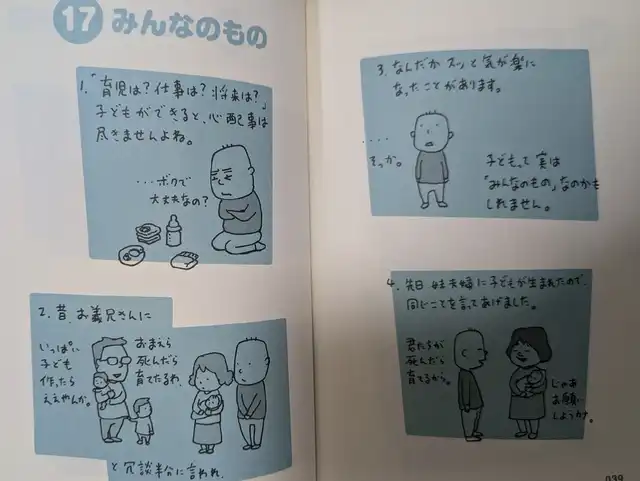 17 みんなのもの
1.「育児は？仕事は？将来は？」
子どもができると、心配事は
尽きませんよね。
…ボクで
大丈夫なの？
2. 昔、お義兄さんに
いっぱい
子ども
作ったら
ええやんか。
おまえら
死んだら
育てたるわ。
と冗談半分に言われ、
3. なんだかスッと気が楽に
なったことがあります。
‥‥
そっか。
子どもって実は
「みんなのもの」なのかも
しれません。
4. 先日 妹夫婦に子どもが生まれたので、
同じことを言ってあげました。
君たちが
死んだら
育てるから。
じゃあ
お願い
しようかな。
039